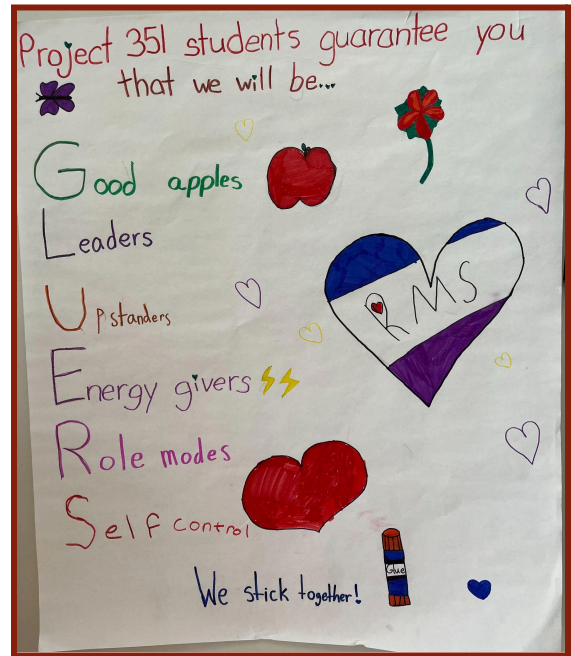 Project 351 students guarantee you
that we will be...
Good apples
Leaders
RMS
Upstanders
Energy givers
Role modes
Self control
Glue
We stick together!